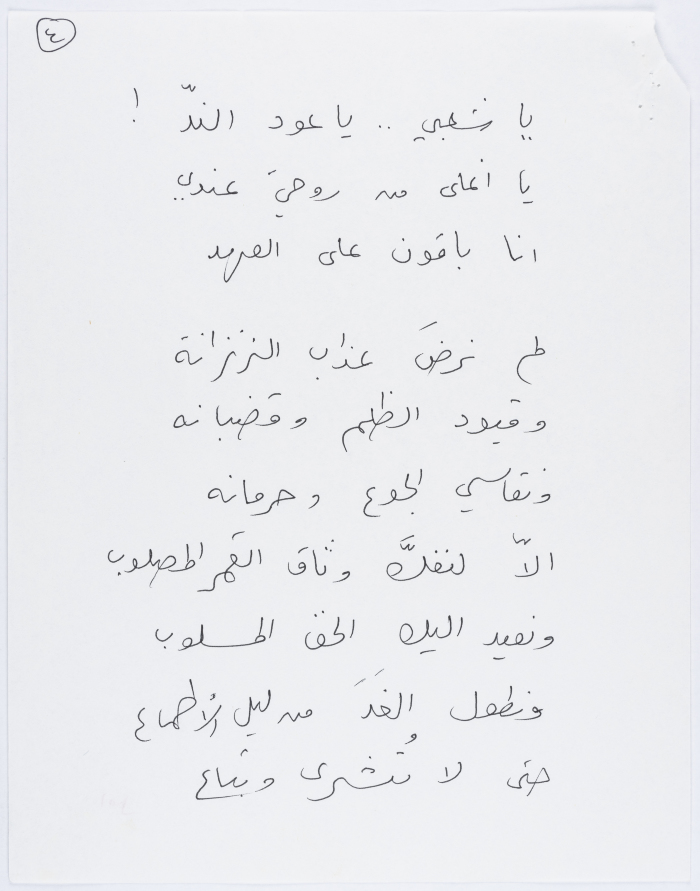 ٤
يا شعبي .. يا عود الندّ !
يا أغلى من روحيَ عندي
انا باقون على العهد
لم نرضَ عذاب الزنزانة
وقيود الظلم وقضبانه
ونقاسي الجوع وحرمانه
الاّ لنفكَّ وثاق القَمر المصلوب
ونعيد اليك الحق المسلوب
ونطول الغَدَ من ليل الأطماع
حتى لا تُشرى وتباع